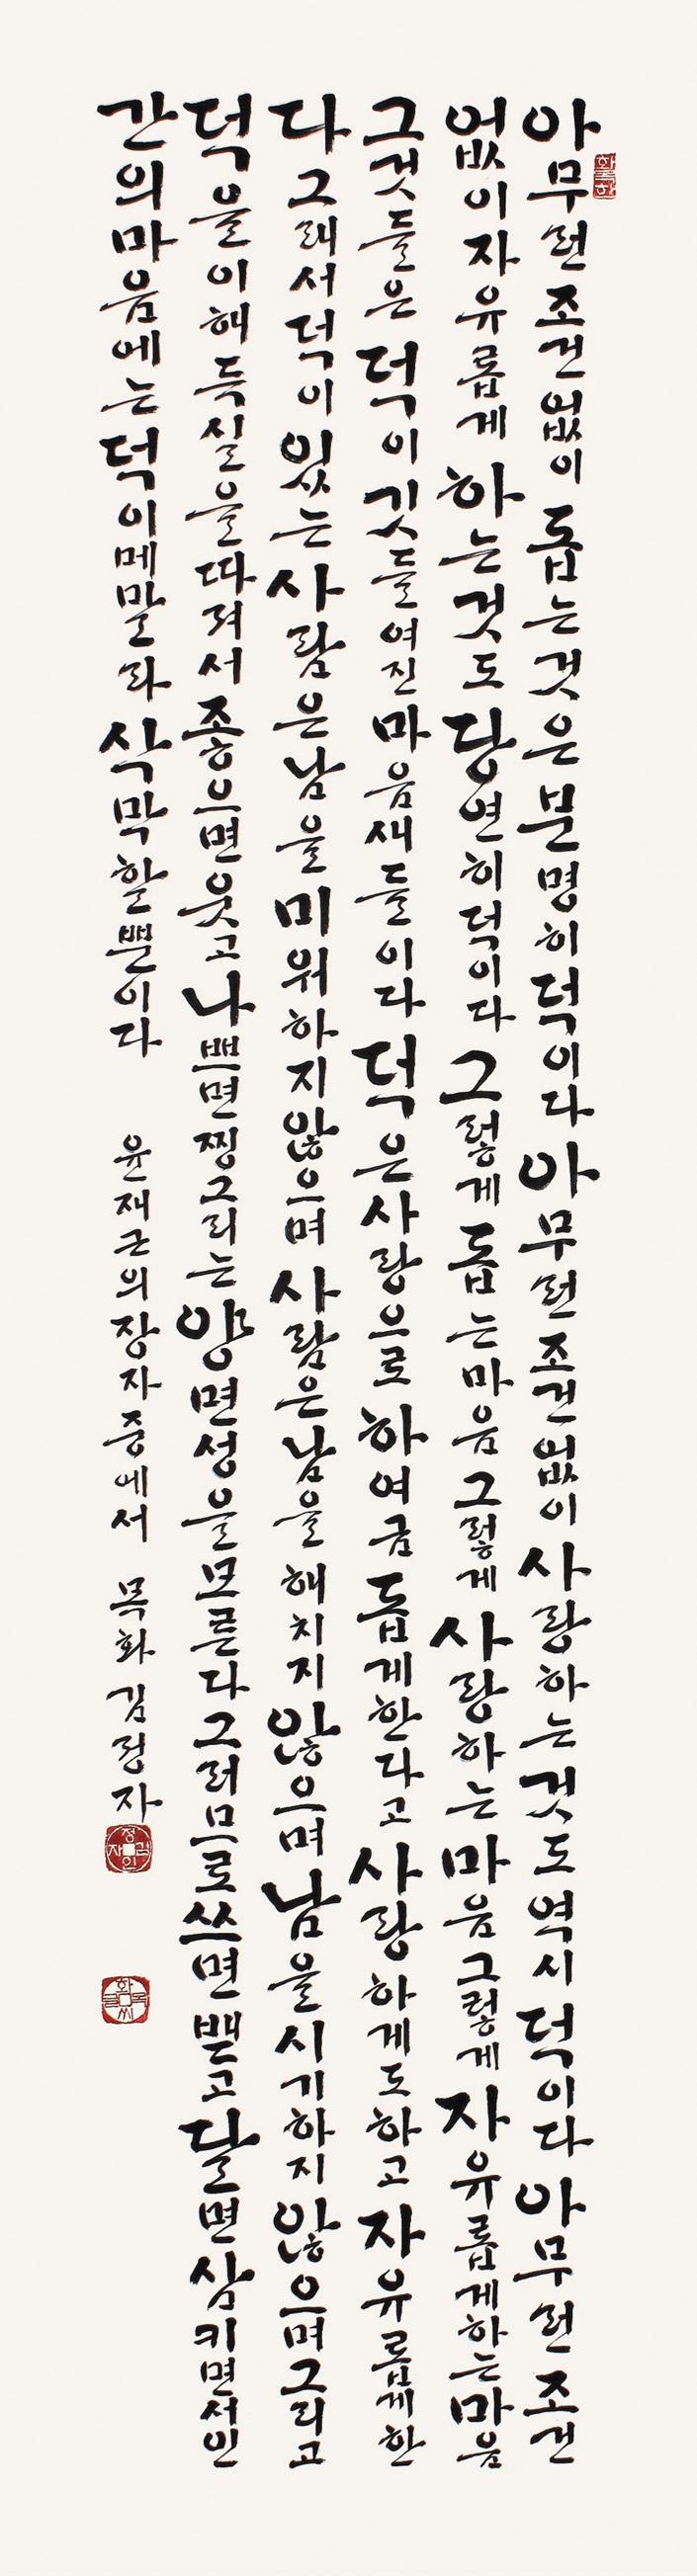 아무런조건없이돕는것은분명히덕이다아무런조건없이사랑하는것도역시덕이다아무런조건
없이자유롭게하는것도당연히덕이다그렇게돕는마음그렇게사랑하는마음그렇게자유롭게하는마음
그것들은덕이깃들여진마음새들이다덕은사랑으로하여금돕게한다고사랑하게도하고자유롭게한
다그래서덕이있는사람은남을미워하지않으며사람은남을해치지않으며남을시기하지않으며그리고
덕을이해득실을따져서좋으면웃고나쁘면찡그리는양면성을모른다그러므로쓰면뱉고달면삼키면서인
간의마음에는덕이메말라삭막할뿐이다 윤재근의장자중에서 목화김정자